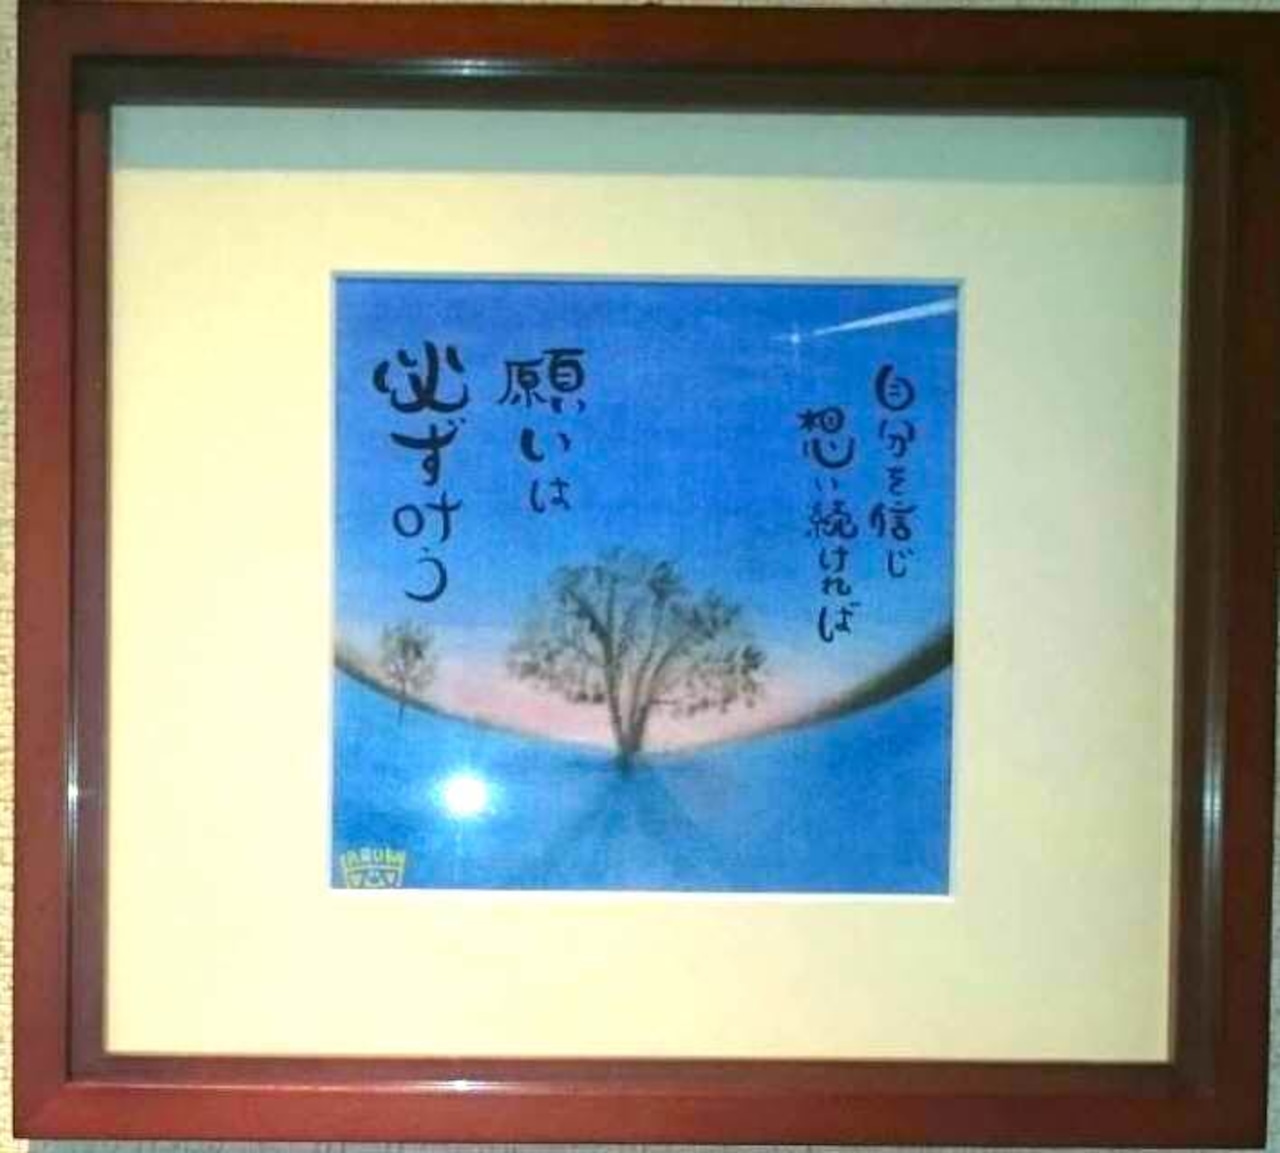 自分を信じ
想い続ければ
願いは
必ず叶う